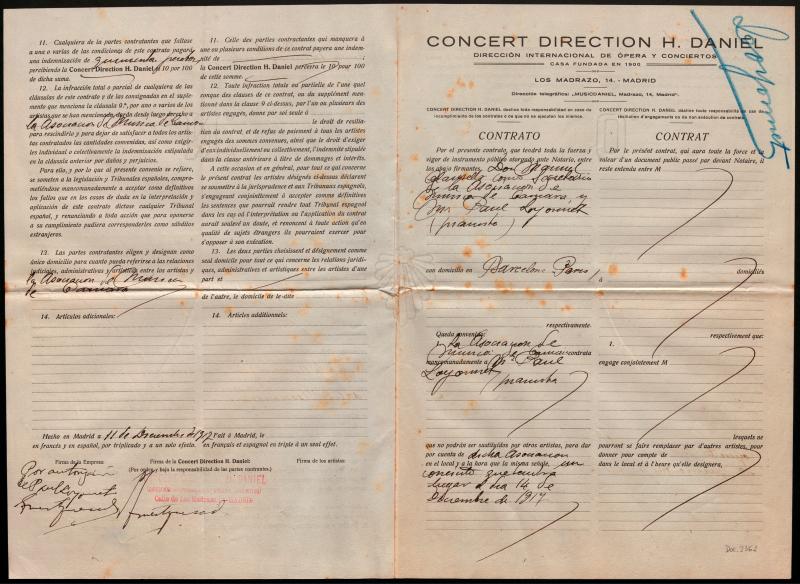 11. Cualquiera de la partes contratantes que faltase
a una o varias de las condiciones de este contrato pagará
una indemnización de
percibiendo la Concert Direction H. Daniel el 10 por 100
de dicha suma.
12. La infracción total o parcial de cualquiera de las
cláusulas de este contrato y de las consignadas en el suplemento
que menciona la cláusula 9.ª, por uno o varios de los
artistas que se han mencionado, da
la Asociación de Musica de Camara
para rescindirlo y para dejar de satisfacer a todos los artistas
contratados las cantidades convenidas, así como exigirles
individual o colectivamente la indemnización estipulada
en la cláusula anterior por daños y perjuicios.
Para ello, y por lo que al presente convenio se refiere,
se someten a la legislación y Tribunales españoles, comprometiéndose
mancomunadamente a aceptar como definitivos
los fallos que en los casos de duda en la interpretación y
aplicación de este contrato pueda dictar cualquier Tribunal
español, y renunciando a toda acción que para oponerse
a su cumplimiento pudiera corresponderles como súbditos
extranjeros.
13. Las partes contratantes eligen y designan como
único domicilio para cuanto pueda referirse a las relaciones
judiciales, administrativas y artísticas entre los artistas y
la Asociacion de Musica
de Camara
14. Artículos adicionales:
Hecho en Madrid a 11 de Diciembre de 1917
en francés y en español, por triplicado y a un solo efecto.
Firma de la Empresa
Por autorización
de Paul Loyonnet
11. Celle des parties contractantes qui manquera à
une ou plusieurs conditions de ce contrat payera une indemnité
de
la Concert Direction H. Daniel percevra le 10 pour 100
de celle somme.
12. Toute infraction totale ou partielle de l'une quelconque
des clauses de ce contrat, ou du supplément mentionné
dans la clause 9 ci-dessus, par l'un ou plusieurs des
artistes engagés, donne par soi seule à
le droit de resiliation
du contrat, et de refuser de paiement à tous les artistes
engagés des sommes convenues, ainsi que d'exiger d'eux,
individuellement ou collectivement, l'indemnité stipulée
dans la clause antérieure à titre de dommages et intérêts.
A cette occasion et en général, pour tout ce qui concerne
le présent contrat les artistes désignés ci-dessus déclarent
se soumettre à la jurisprudence et aux Tribunaux espagnols,
s'engageant conjointement à accepter comme définitives
les sentences que pourrait rendre tout Tribunal espagnol
dans les cas où l'interprétation ou l'application du contrat
aurait soulevé un doute, et renoncent à toute action qu'en
qualité de sujets étrangers ils pourraient exercer pour
s'opposer à son exécution.
13. Les deux parties choisissent et désignent comme
seul domicile pour tout ce qui concerne les relations juridiques,
administratives et artistiques entre les artistes d'une
part et
de l'autre, le domicile de le-dite
14. Articles additionnels:
Fait à Madrid, le
en français et espagnol en triple à un seul effet.
Firma de la Concert Direction H. Daniel:
(Por orden y bajo la responsabilidad de las partes contratantes).
Firma de los artistas:
DANIEL
Calle de Los Madrazo MADRID
CONCERT DIRECTION H. DANIEL
DIRECCIÓN INTERNACIONAL DE ÓPERA Y CONCIERTOS
CASA FUNDADA EN 1900
LOS MADRAZO, 14. - MADRID
Dirección telegráfica: „MUSICDANIEL, Madrazo, 14, Madrid".
Loyonnet
CONCERT DIRECTION H. DANIEL declina toda responsabilidad en caso de
incumplimiento de los contratos o de que no se ejecuten los mismos.
CONTRATO
Por el presente contrato, que tendrá toda la fuerza y
vigor de instrumento público otorgado ante Notario, entre
los abajo firmantes Don Manuel
Clausells como Secretario
de la Asociación de
Musica de Camara, y
Mr. Paul Loyonnet
(pianista)
con domicilio en Barcelona Paris,
respectivamente
Queda convenido
la Asociacion de
Musica de Camara contrata
mancomunadamente a Mr. Paul
Loyonnet
pianista
que no podrán ser sustituídos por otros artistas, para dar
por cuenta de dicha Asociacion
en el local y a la hora que la misma señale, un
concierto que tendrá
lugar el dia 14 de
Diciembre de 1917
CONCERT DIRECTION H. DANIEL décline toute responsabilité en cas de
résiliation d'engagements ou de non exécution de contrats.
CONTRAT
Par le présent contrat, qui aura toute la force et la
valeur d'un document public passé par devant Notaire, il
reste entendu entre M
à domiciliés
respectivement que:
1.
engage conjointement M
lesquels ne
pourront se faire remplacer par d'autres artistes, pour
donner pour compte de
dans le local et à l'heure qu'elle designera,
Doc. 2362